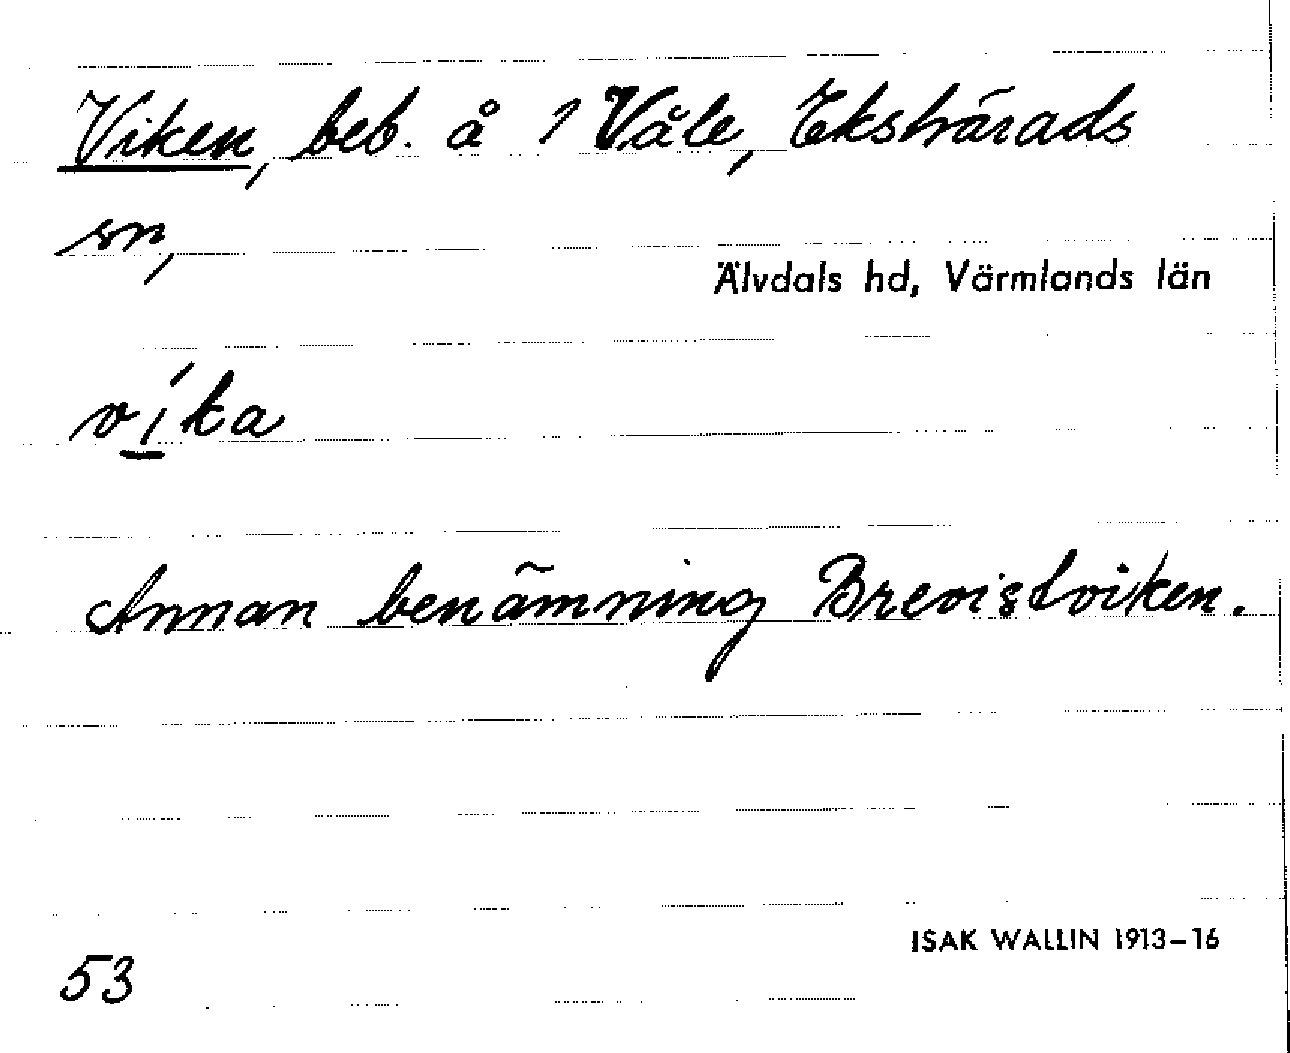 Viken, beb. å 1 Våle, Ekshärads
sn,
Älvdals hd, Värmlands län
víka
Annan benämning Brevistviken.
ISAK WALLIN 1913-16
53